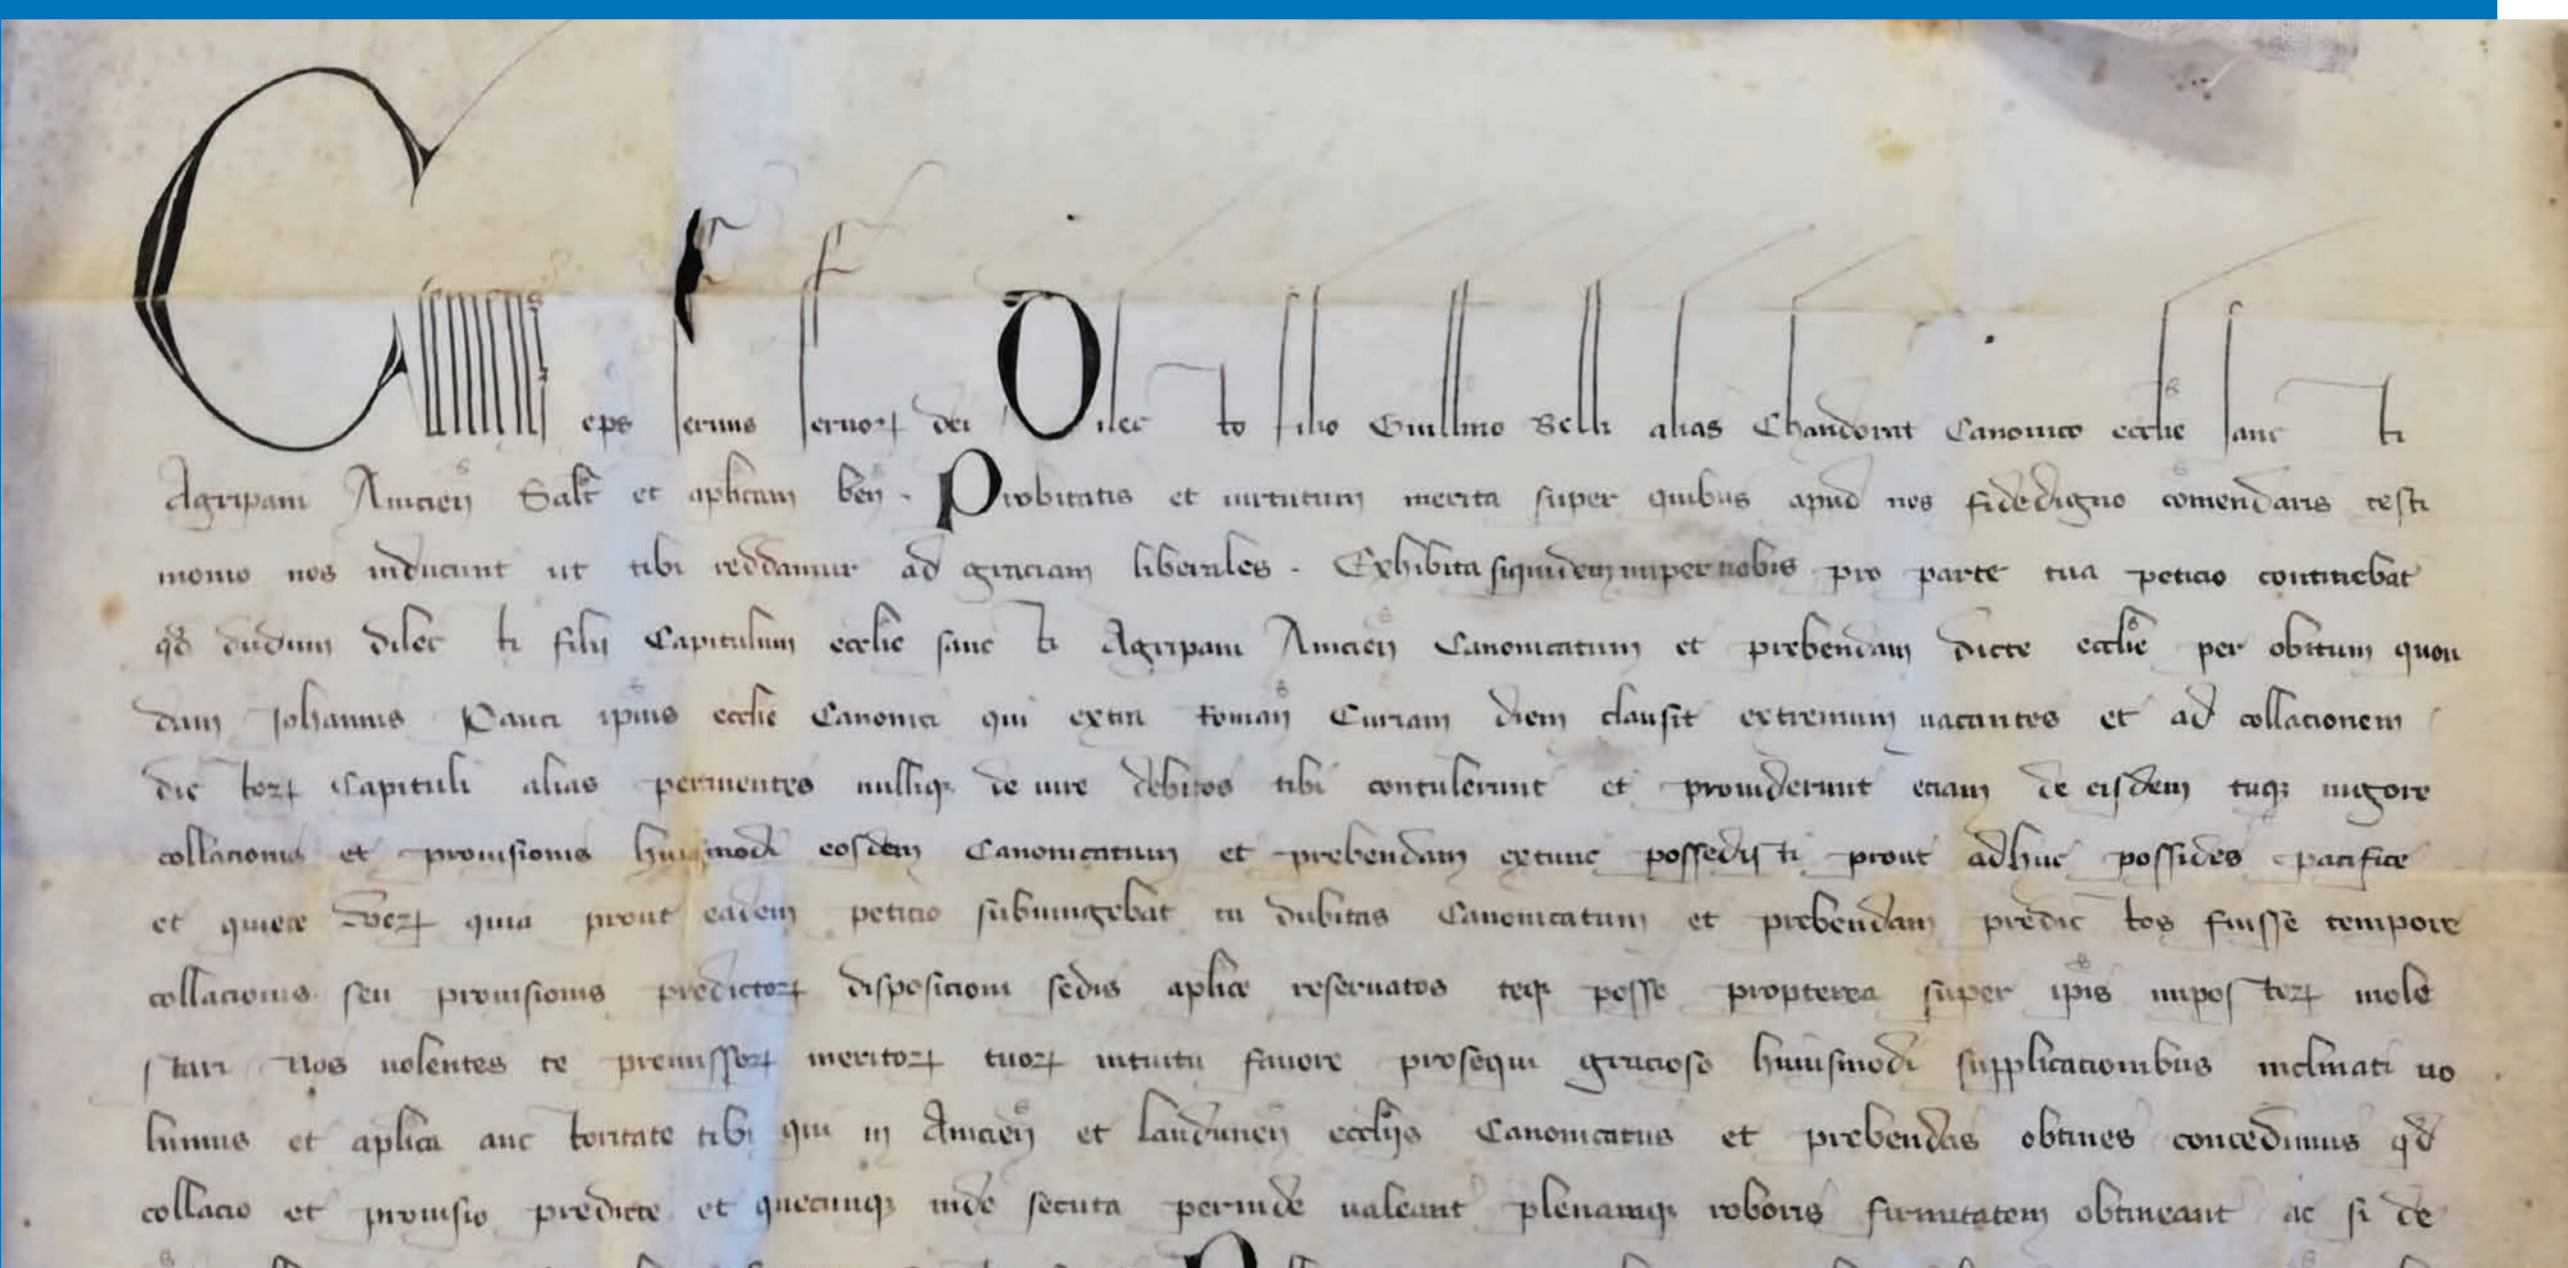 Clemens eps seruus seruoꝝ dei Dilecto filio Guillmo Belli alias Chandorat Canonico ecclie sancti
Agripani Anicien̄ Salt et aplicam ben̄. Probitatis et uirtutum merita super quibus apud nos fidedigno comendaris testi
monio nos inducunt ut tibi reddamur ad graciam liberales. Exhibita siquidem nuper nobis pro parte tua peticio continebat
qd dudum dilecti filii Capitulum ecclie sancti Agripani Anicien̄ Canonicatum et prebendam dicte ecclie per obitum quon
dam Johannis Pauci ipius ecclie Canonici qui extra Roman̄ Curiam diem clausit extremum uacantes et ad collacionem
dictoꝝ Capituli alias pertinentes nulliqꝫ de iure debitos tibi contulerunt et prouiderunt eciam de eisdem tuqꝫ uigore
collacionis et prouisionis huiusmodi eosdem Canonicatum et prebendam extunc possedisti prout adhuc possides pacifice
et quiete quia prout eadem peticio subiungebat tu dubitas Canonicatum et prebendam predictos fuisse tempore
collacionis seu prouisionis predictoꝝ disposicioni sedis aplice reseruatos teqꝫ posse propterea super ipis imposteꝝ mole
stari Nos uolentes te premissoꝝ meritoꝝ tuoꝝ intuitu fauore prosequi gracioso huiusmodi supplicacionibus inclinati uo
lumus et aplica auctoritate tibi qui in Anicien̄ et laudunen̄ ecclijs Canonicatus et prebendas obtines concedimus qd
collacio et prouisio predicte et quecunqꝫ inde secuta perinde ualeant plenamqꝫ roboris firmitatem obtineant ac si de